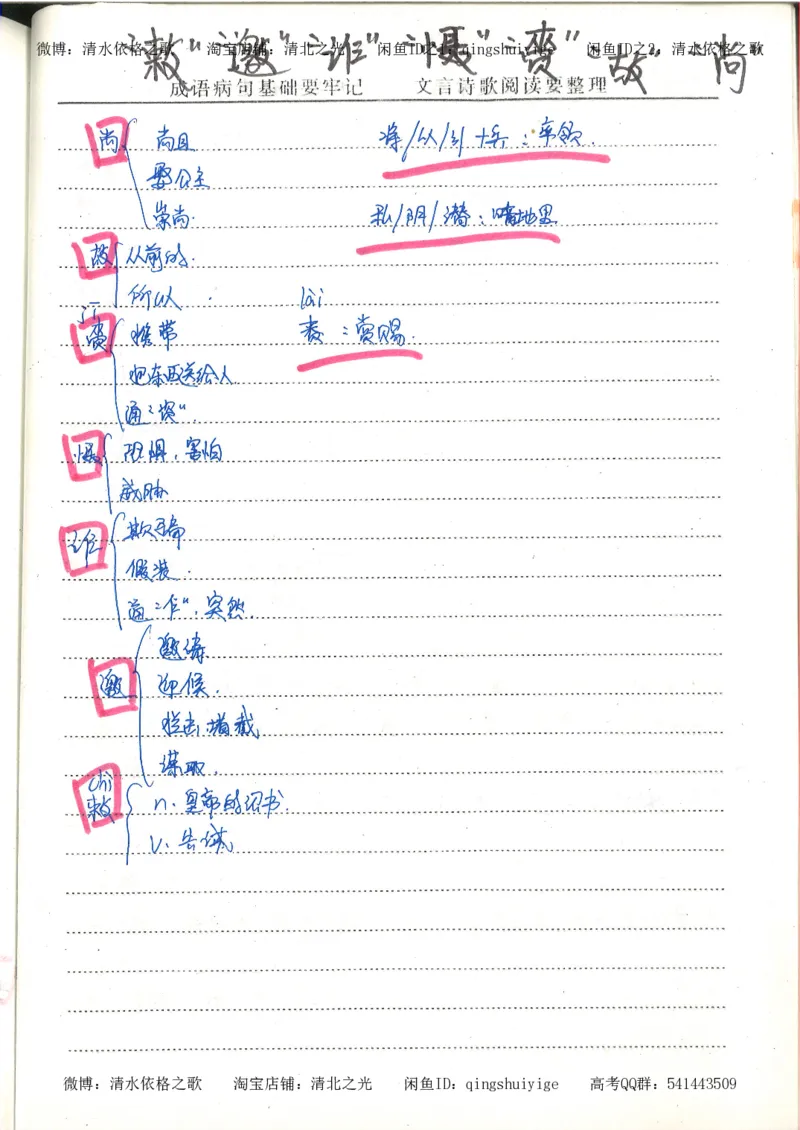 微博：清水依格之歌 淘宝店铺：清北之光 闲鱼ID之1：qingshuiyige 闲鱼ID之2：清水依格之歌
敕“邀”“诈”“慑”“赍”“故”尚
成语病句基础要牢记 文言诗歌阅读要整理
尚 尚且 将/从/引 十兵：率领.
娶公主
崇尚. 私/阴/潜：暗地里
故 从前的.
所以. lài
jī
赍 携带 赉：赏赐.
把东西送给人
通“赍”.
慑 恐惧.害怕
威胁
诈 欺骗
假装.
通“乍”.突然.
邀 邀请
迎候.
拦击堵截
谋取.
chì
敕 n.皇帝的诏书.
v.告诫
微博：清水依格之歌 淘宝店铺：清北之光 闲鱼ID：qingshuiyige 高考QQ群：541443509